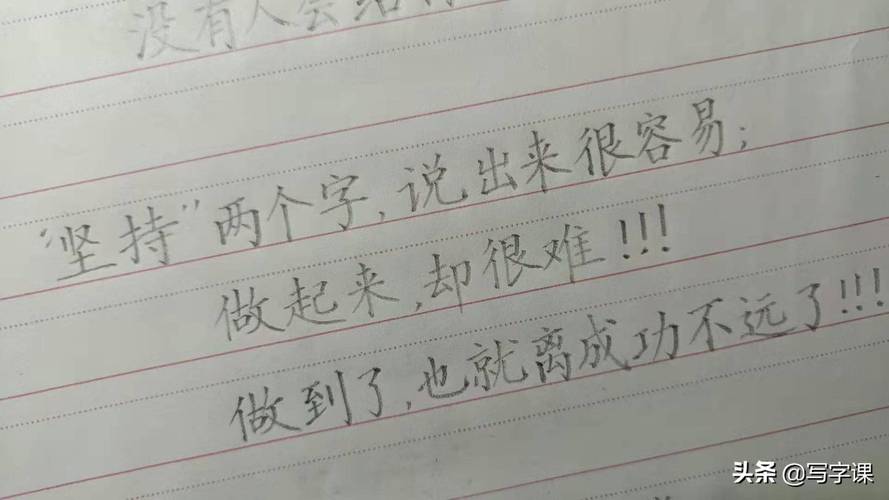 没有人会给
“坚持”两个字,说出来很容易;
做起来,却很难!!!
做到了,也就离成功不远了!!!
头条 @写字课